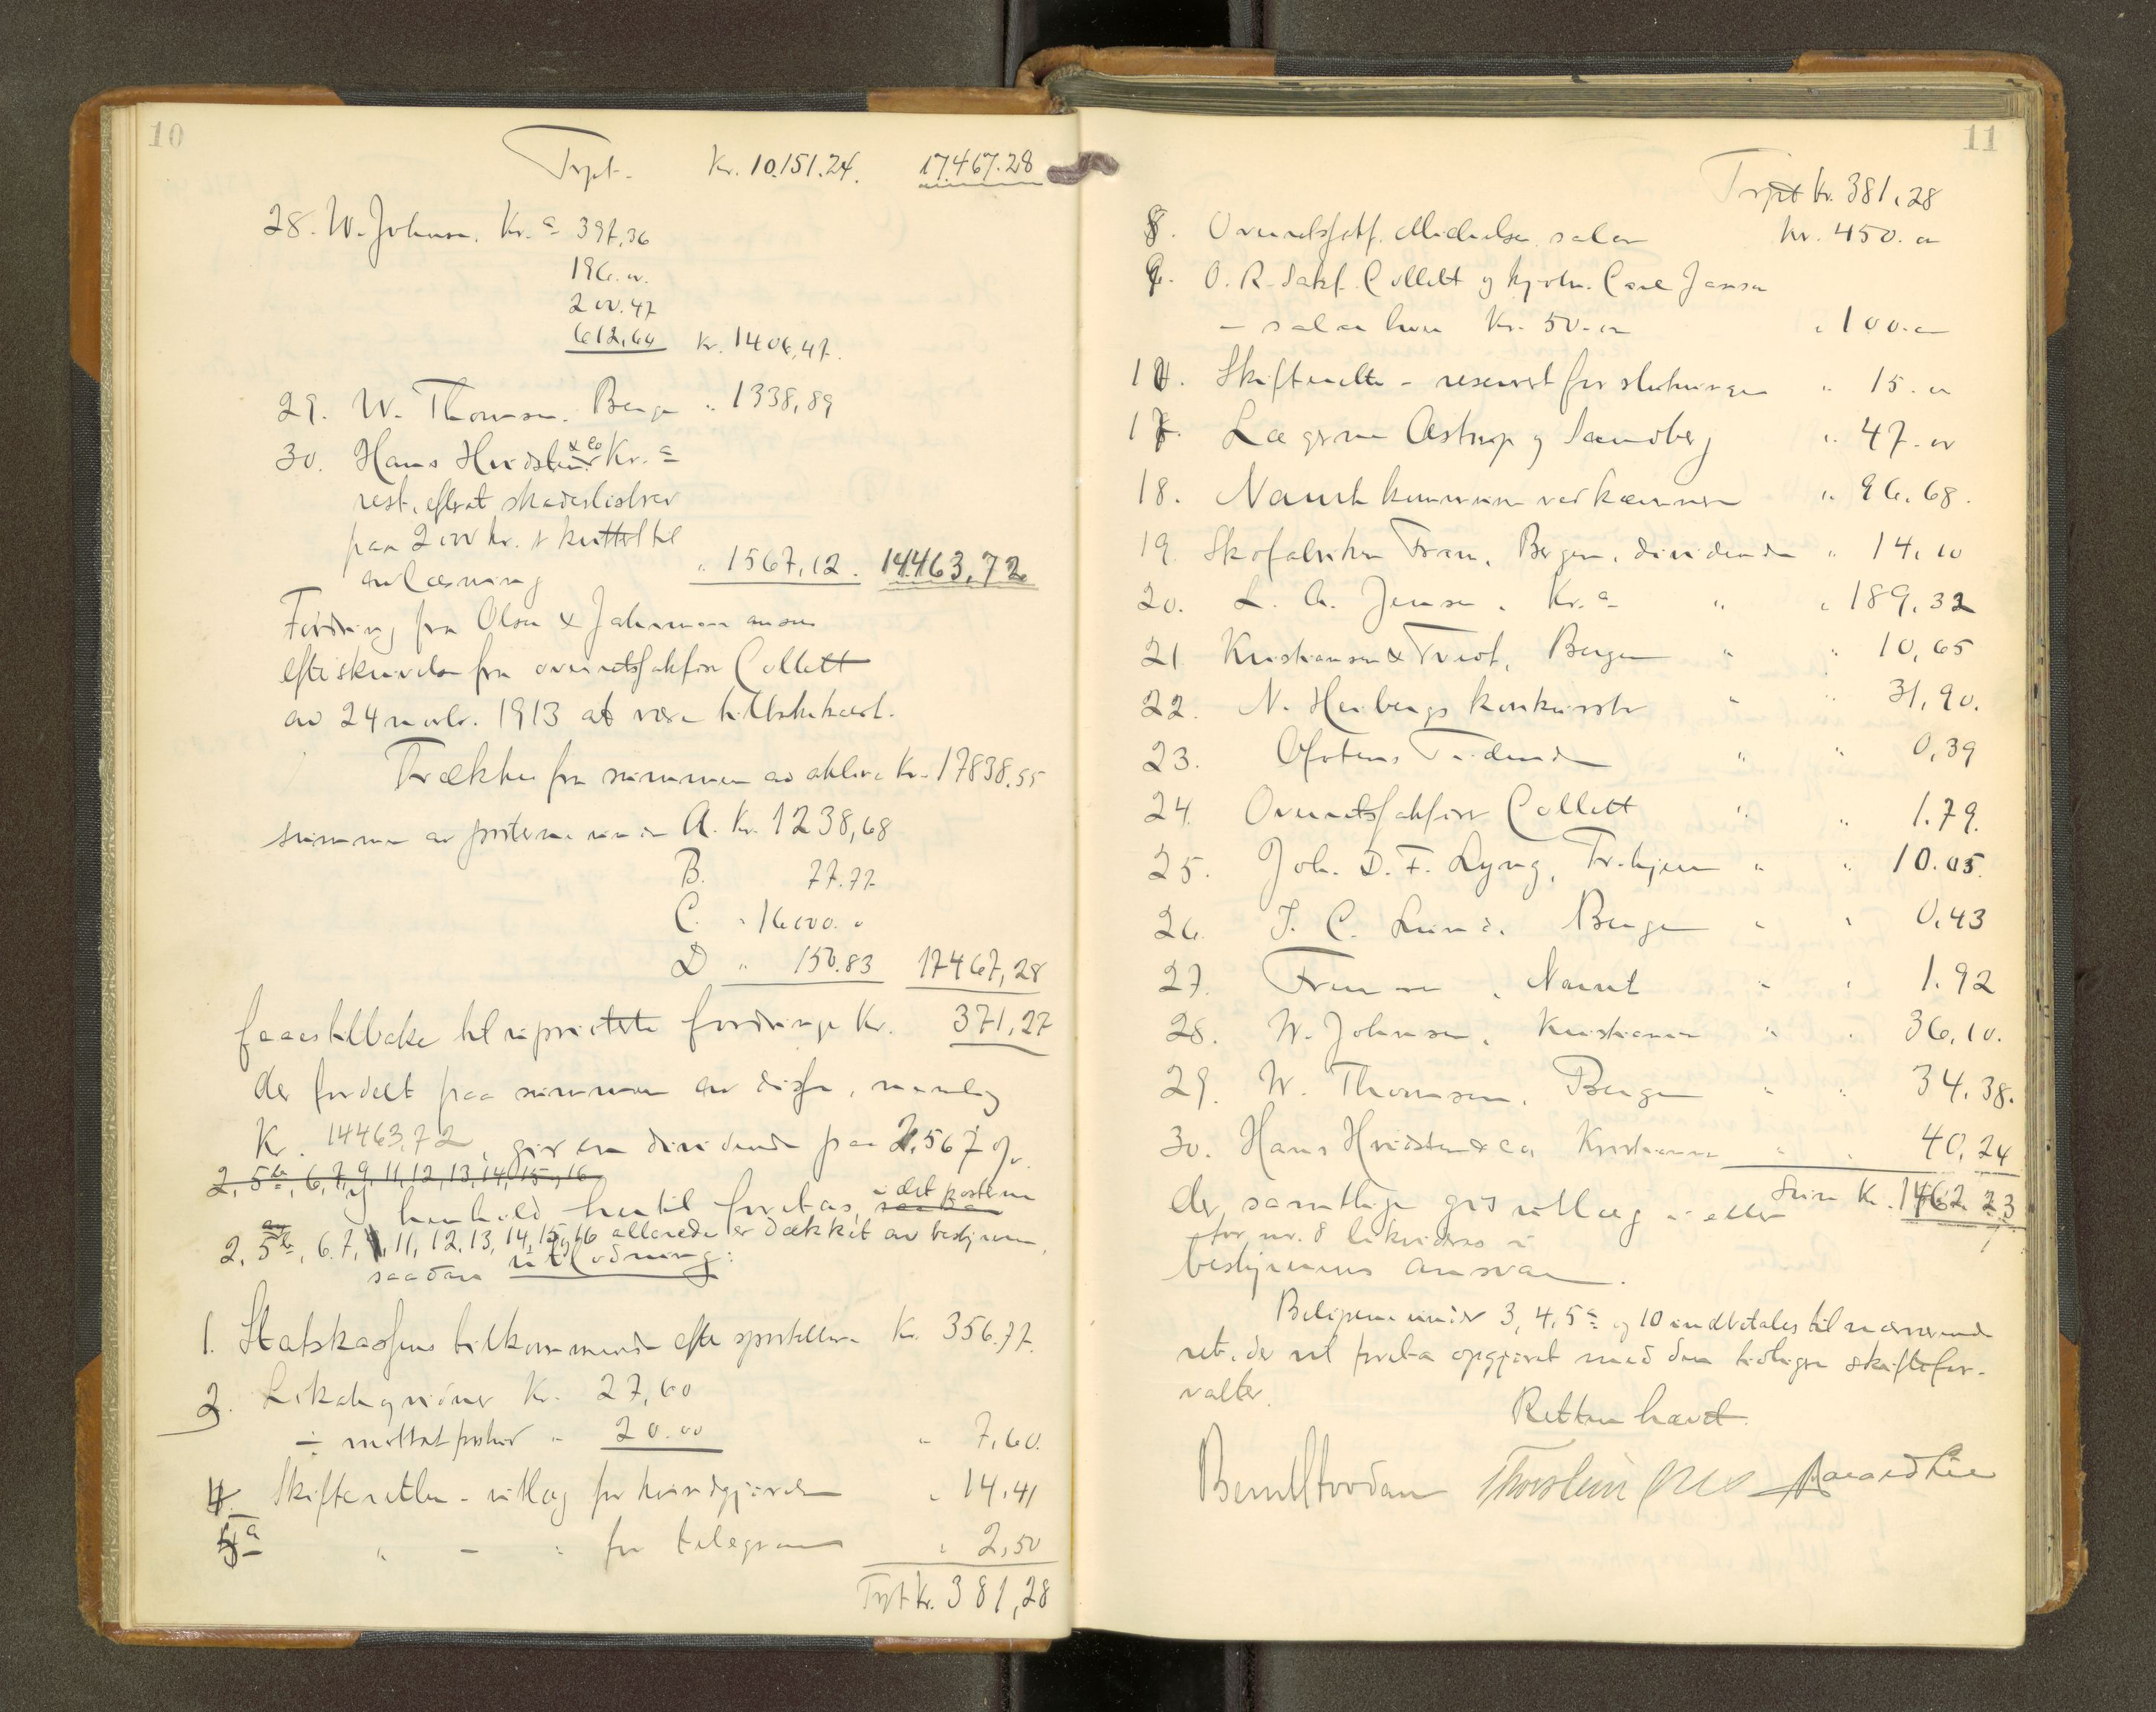 10
Trpt. Kr. 10.151.24. 17.467.28
28. W. Johnsen. Kr.a 397,36
196. "
200.47
612,64 Kr. 1406,47.
29. W. Thomsen. Bergen " 1338,89
30. Hans Hvidsten & Co Kr.a
rest. efter at
paa 200 kr. er
" 1567,12. 14463,72
Fordring fra Olsen & Johannesen
efter skrivelse fra overretssakfører Collett
av 24 novbr. 1913 at være tilbakekaldt.
Trækkes fra summen av aktiva Kr. 17838.55
summen av posterne under A. Kr. 1238,68
B. 77.77
C. " 16000. "
D " 150.83 17467,28
faaes tilbake til uprioriterte fordringer Kr. 371,27
der fordelt paa summen av disse, nemlig
Kr. 14463,72, gir en dividende paa 2,567 %.
2, 5b, 6, 7, 9, 11, 12, 13, 14, 15 og 16
I henhold hertil foretas, idet posterne
2, 5b, 6, 7, 11, 12, 13, 14, 15 og 16 allerede er dækket av bestyreren,
saadan utlodning:
1. Statskassens tilkommende efter sportelloven Kr. 356.77.
3. Kr. 27,60
÷ mottat " 20.00 " 7,60.
4. Skifteretten - utlæg for kundgjørelse " 14,41
5a " - " for telegram " 2,50
Trpt Kr. 381,28
11
Trpt Kr. 381,28
8. Overretssakf. Michelsen salær Kr. 450. "
9. O. R. Sakf. Collett og Carl Jensen
- salær hver Kr. 50. " " 100. "
10. Skifteretten - reservert for slutningen " 15. "
17. Lægerne Astrup og Sandberg " 47. "
18. Narvik kommune ved kæmneren " 96,68.
19. Skofabriken Fram, Bergen, dividende " 14,10
20. L. A. Jensen, Kr.a " " 189,32
21 Kristiansen & Tvedt, Bergen " " 10,65
22. N. Heibergs konkursbo " " 31,90.
23. Ofotens Tidende " " 0,39
24. Overretssakfører Collett " " 1.79.
25. Joh. D. F. Lyng, Tr.hjem " " 10.05.
26. J. C. Lund. Bergen " " 0,43
27. , Narvik " " 1.92
28. W. Johnsen, Kristiania " " 36,10.
29. W. Thomsen, Bergen " " 34,38.
30. Hans Hvidsten & Co, Kristiania " " 40,24
Sum Kr. 1462.23
der samtlige utlæg
for nr. 8 likvideres i
bestyrerens ansvar.
Beløpene under 3, 4, 5a og 10 indbetales til nærværende
ret, der vil foreta opgjøret med den tidligere skiftefor-
valter.
Retten hævet.